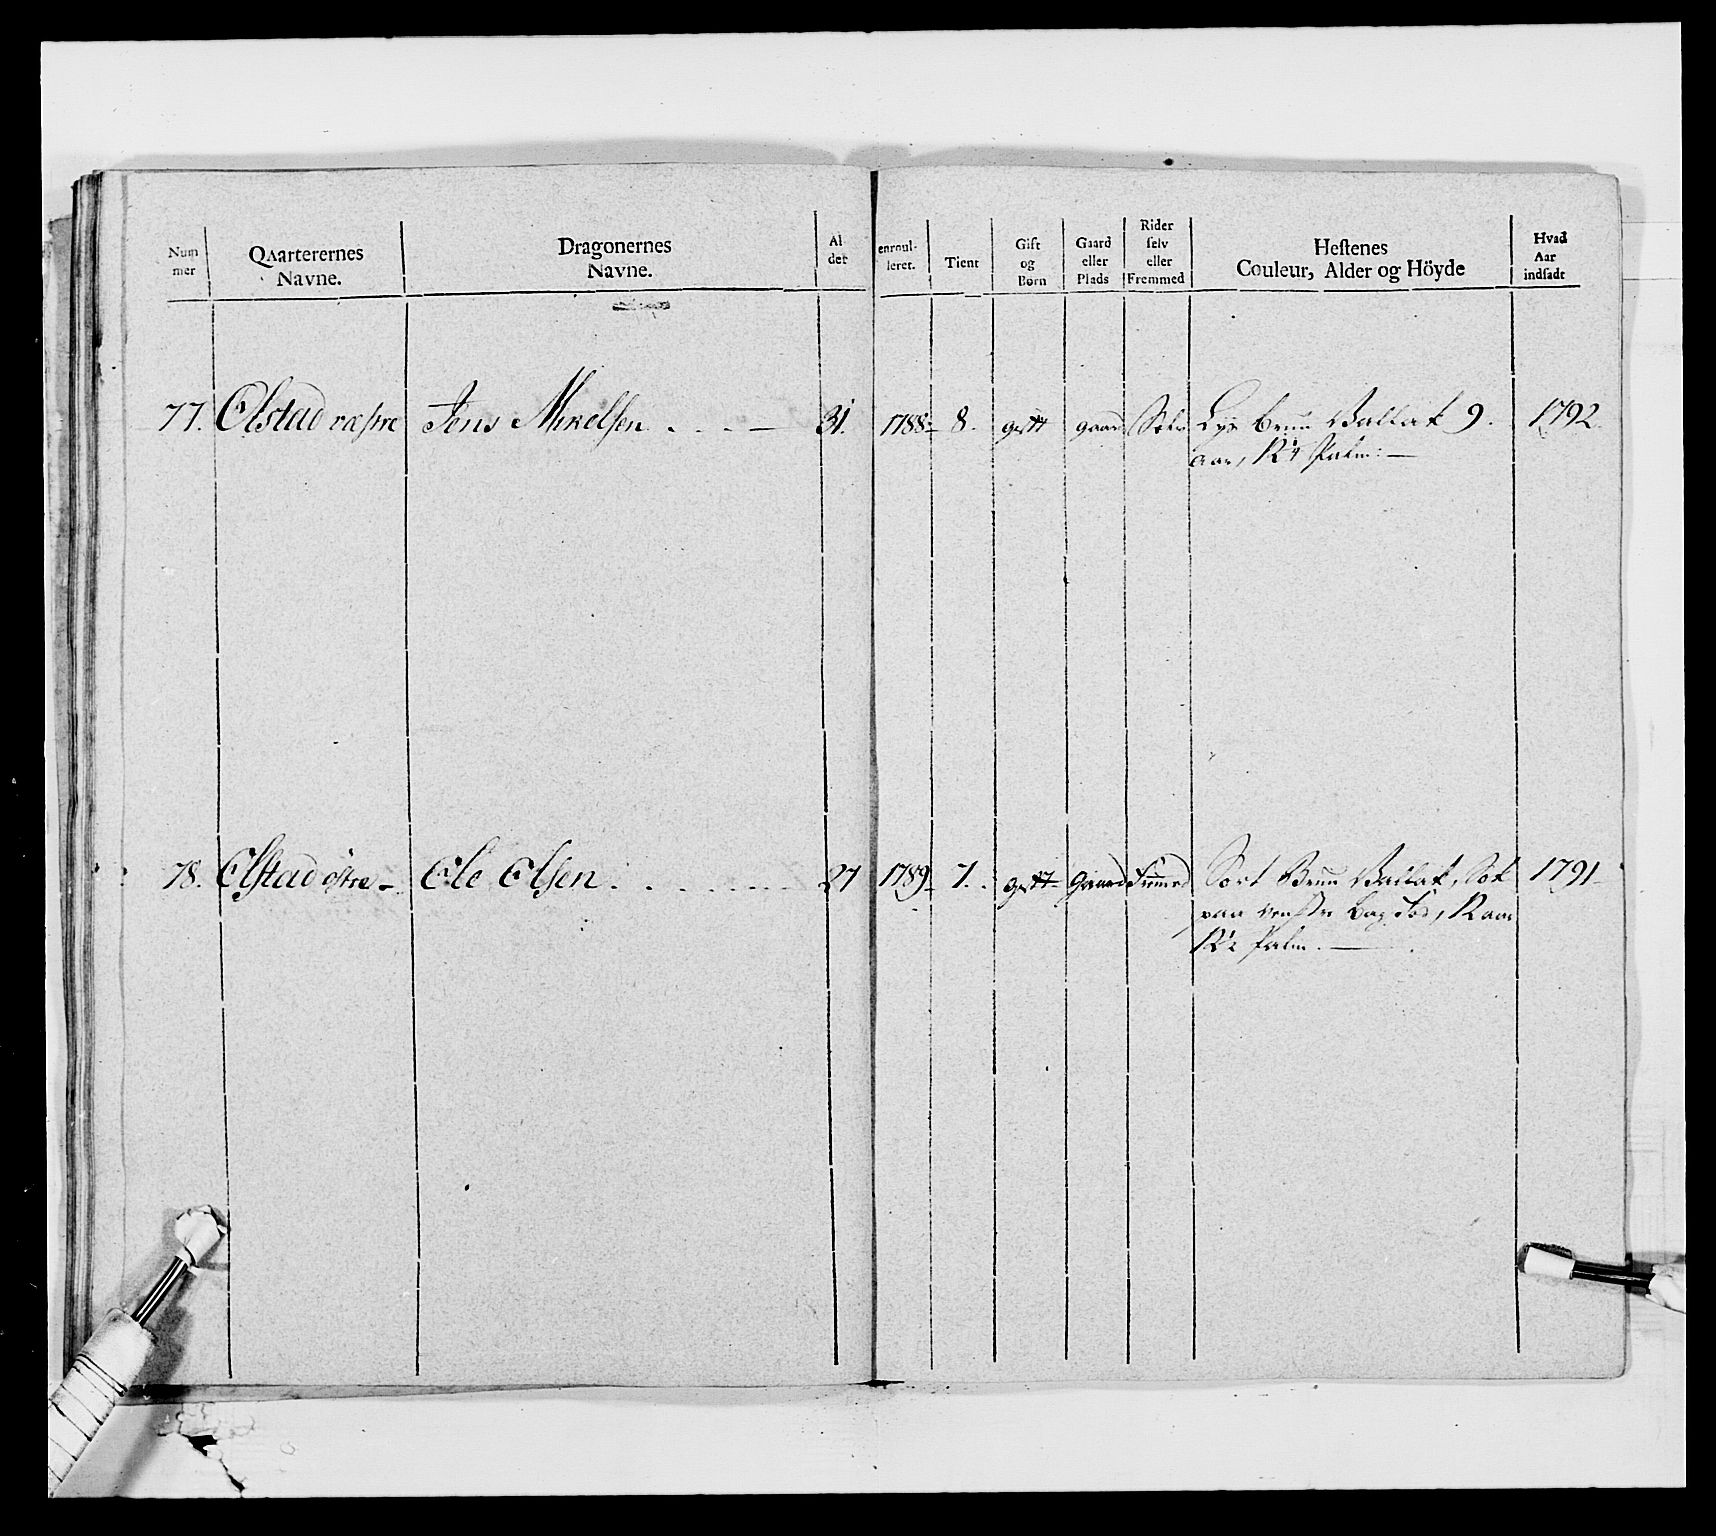 Num mer
Qvarterernes Navne.
Dragonernes Navne.
Al det
enroul- leret.
Tient
Gift og Børn
Gaard eller Plads
Rider selv eller Fremmed
Hestenes Couleur, Alder og Höyde
Hvad Aar indsadt
77. Olstad væstre Jens Mikelsen . . . . — 31. 1788- 8. gift gaard Selv Lys bruun Vallak 9. 1792.
aar, Palm: —
78. Olstad östre - Ole Olsen . . . . . . . . 27 1789- 7. gift- Gaard Fremed Sort Bruun Vallak, Sok 1791-
paa venstre bag Fod, aar
Palm. —